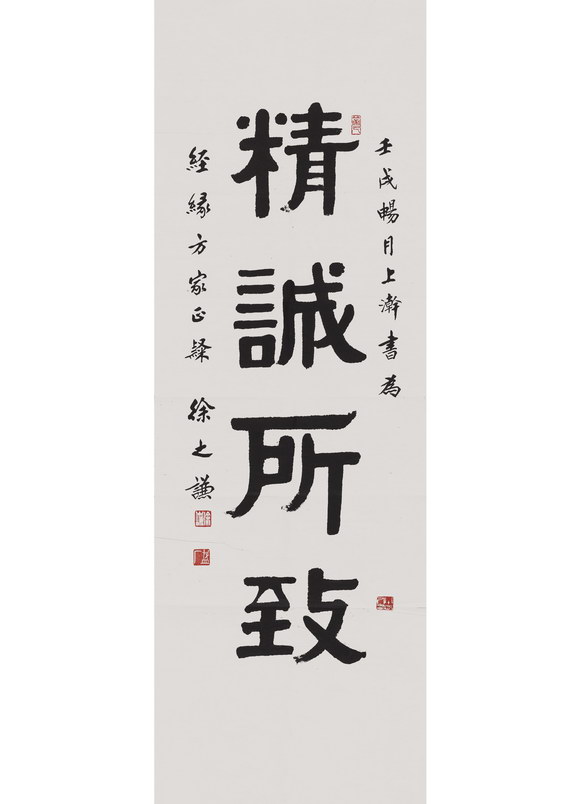 壬戌暢月上澣書為
精誠所致
經緣方家正
徐之謙